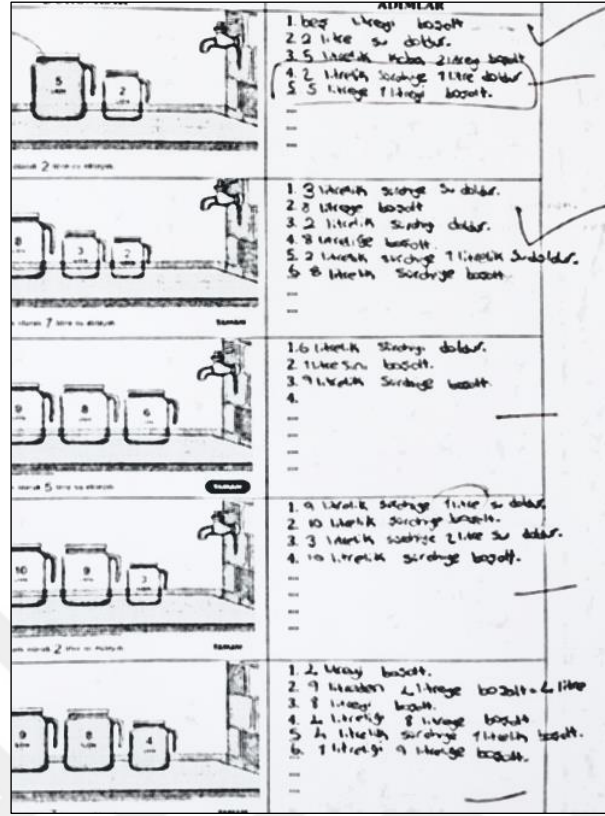 ADIMLAR
1. beş litreyi boşalt
2. 2 litre su doldur.
3. 5 litrelik kaba 2 litreyi boşalt
4. 2 litrelik sürahiye 1 litre doldur
5. 5 litreye 1 litreyi boşalt.
5
2
olarak 2 litre su
1. 3 litrelik sürahiye su doldur.
2. 8 litreye boşalt
3. 2 litrelik sürahiy doldur.
4. 8 litreliğe boşalt.
5. 2 litrelik sürahiye 1 litrelik su doldur.
6. 8 litrelik sürahiye boşalt
8
3
2
olarak 7 litre su
tamam
1. 6 litrelik sürahiyi doldur.
2. 1 litresini boşalt.
3. 9 litrelik sürahiye boşalt.
4.
9
8
6
olarak 5 litre su
tamam
1. 9 litrelik sürahiye 1 litre su doldur.
2. 10 litrelik sürahiye boşalt.
3. 3 litrelik sürahiye 2 litre su doldur.
4. 10 litrelik sürahiye boşalt.
10
9
3
olarak 2 litre su
tamam
1. 4 litreyi boşalt.
2. 9 litreden 4 litreye boşalt = 4 litre
3. 8 litreyi boşalt.
4. 4 litreliği 8 litreye boşalt
5. 4 litrelik sürahiye 1 litrelik boşalt.
6. 1 litreliği 9 litreliğe boşalt.
9
8
4